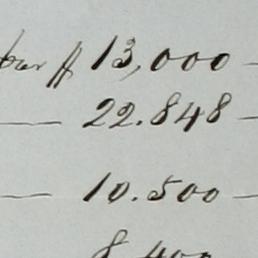 13,000 —
— 22.848 —
— 10.500 —
8.400